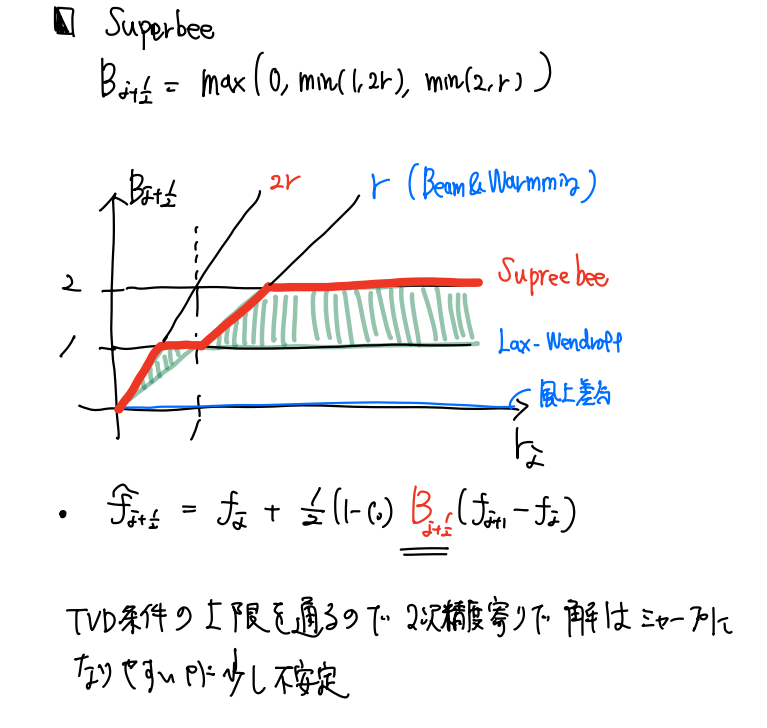 Superbee
B_{j+1/2} = max(0, min(1, 2r), min(2, r))
B_{j+1/2}
2r
r (Beam&Warmming)
2
Supreebee
1
Lax-Wendroff
風上差分
1
r_j
• f̂_{j+1/2} = f_j + 1/2 (1-C₀) B_{j+1/2} (f_{j+1} - f_j)
TVD条件の上限を通るので 2次精度寄りで 解はシャープに
なりやすい 少し不安定